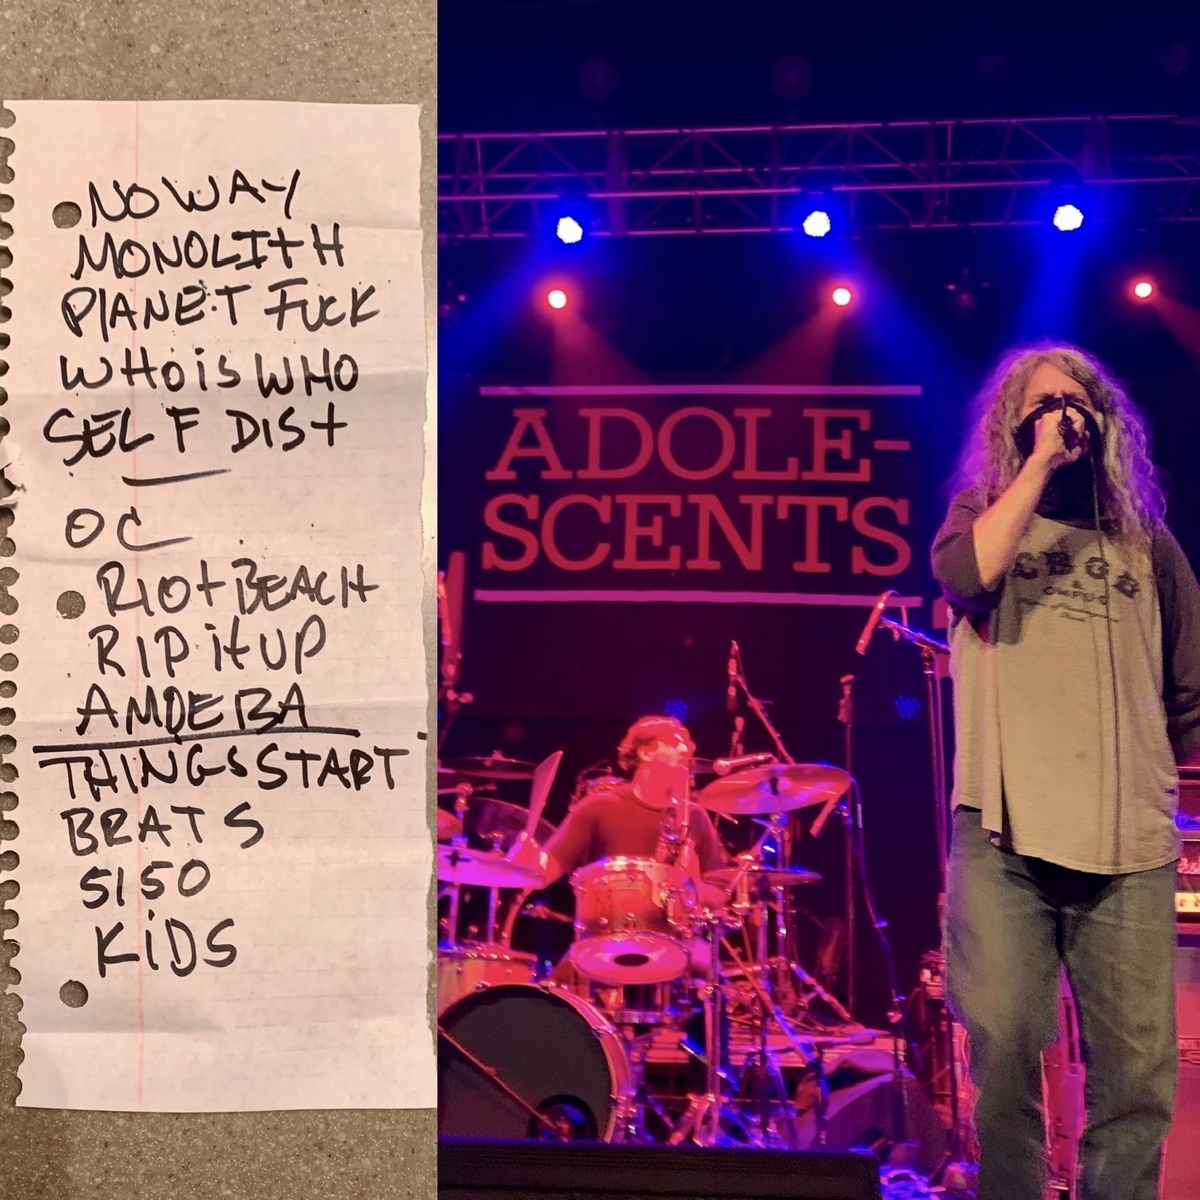 NO WAY
MONOLITH
PLANET FUCK
WHO is WHO
SELF DIST
OC
RIOT BEACH
RIP it UP
AMOEBA
THINGS START
BRATS
5150
KiDS
ADOLE-
SCENTS
CBGB
&
OMFUG